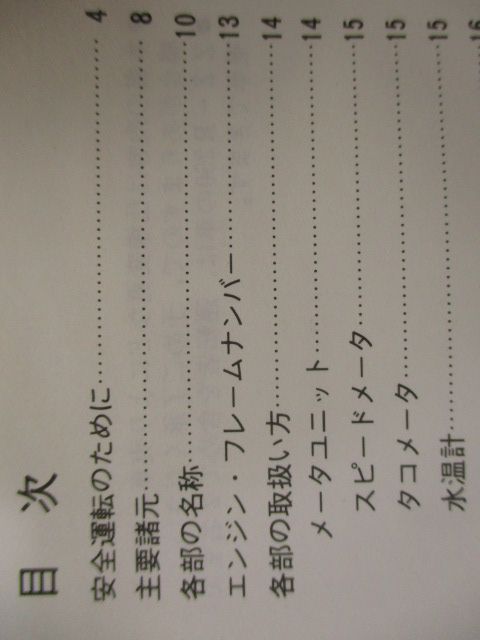 目　次
安全運転のために……………………………4
主要諸元……………………………8
各部の名称……………………………10
エンジン・フレームナンバー……………………………13
各部の取扱い方……………………………14
メータユニット……………………………14
スピードメータ……………………………15
タコメータ……………………………15
水温計……………………………15
16